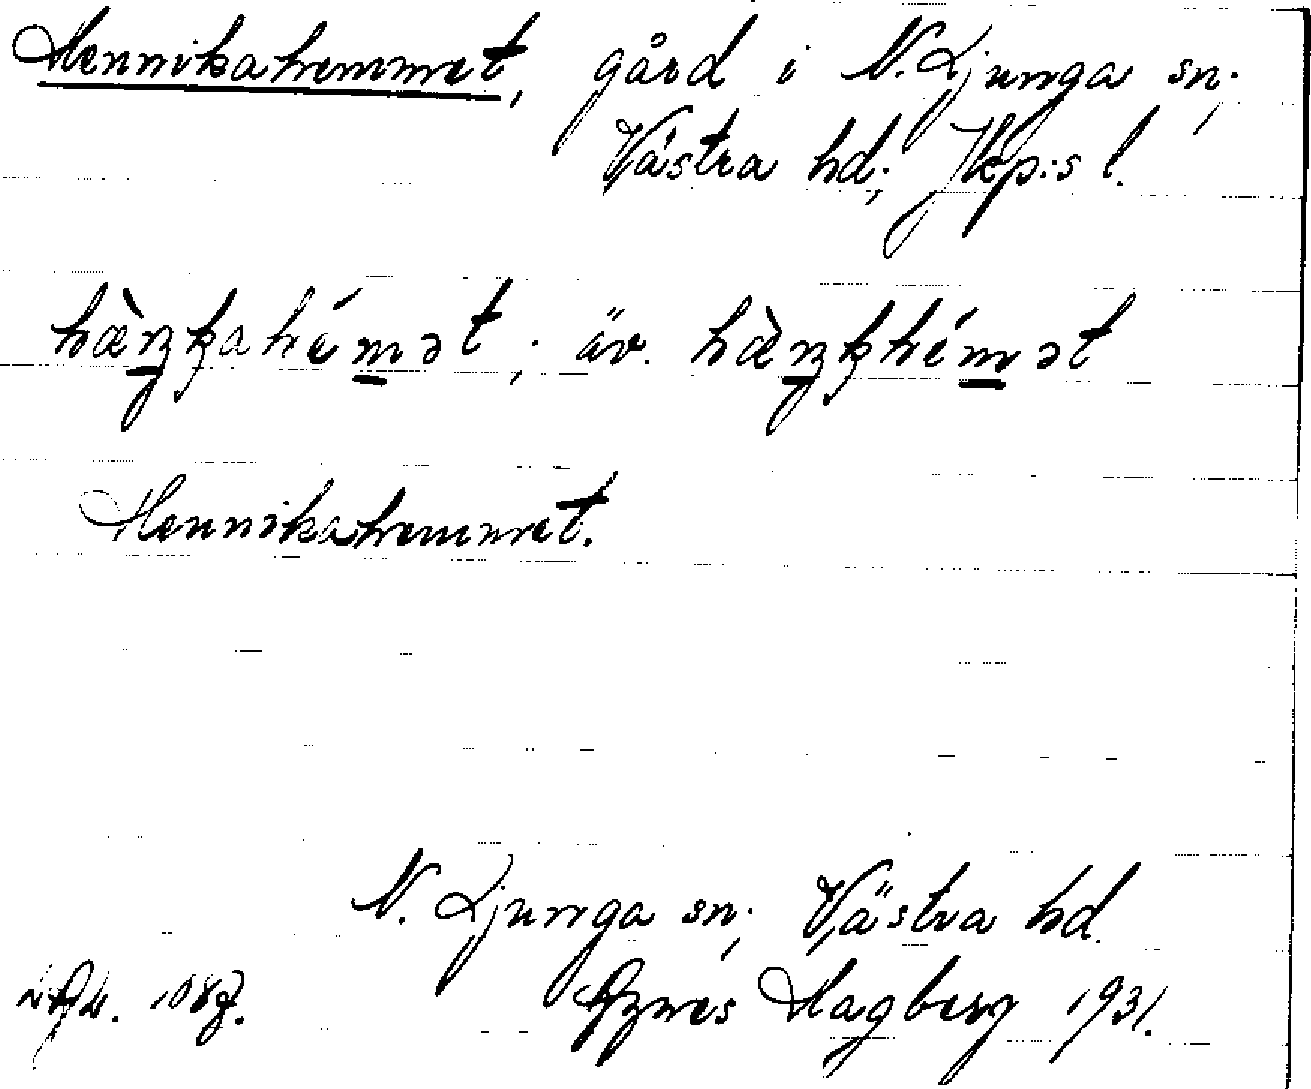 Hennikahemmet, gård i N. Ljunga sn;
Västra hd; Jkp:s l.
hæ̀ŋkahémət; äv. hæ̀ŋkhémət
Hennikahemmet.
N. Ljunga sn; Västra hd.
Agnes Hagberg 1931.